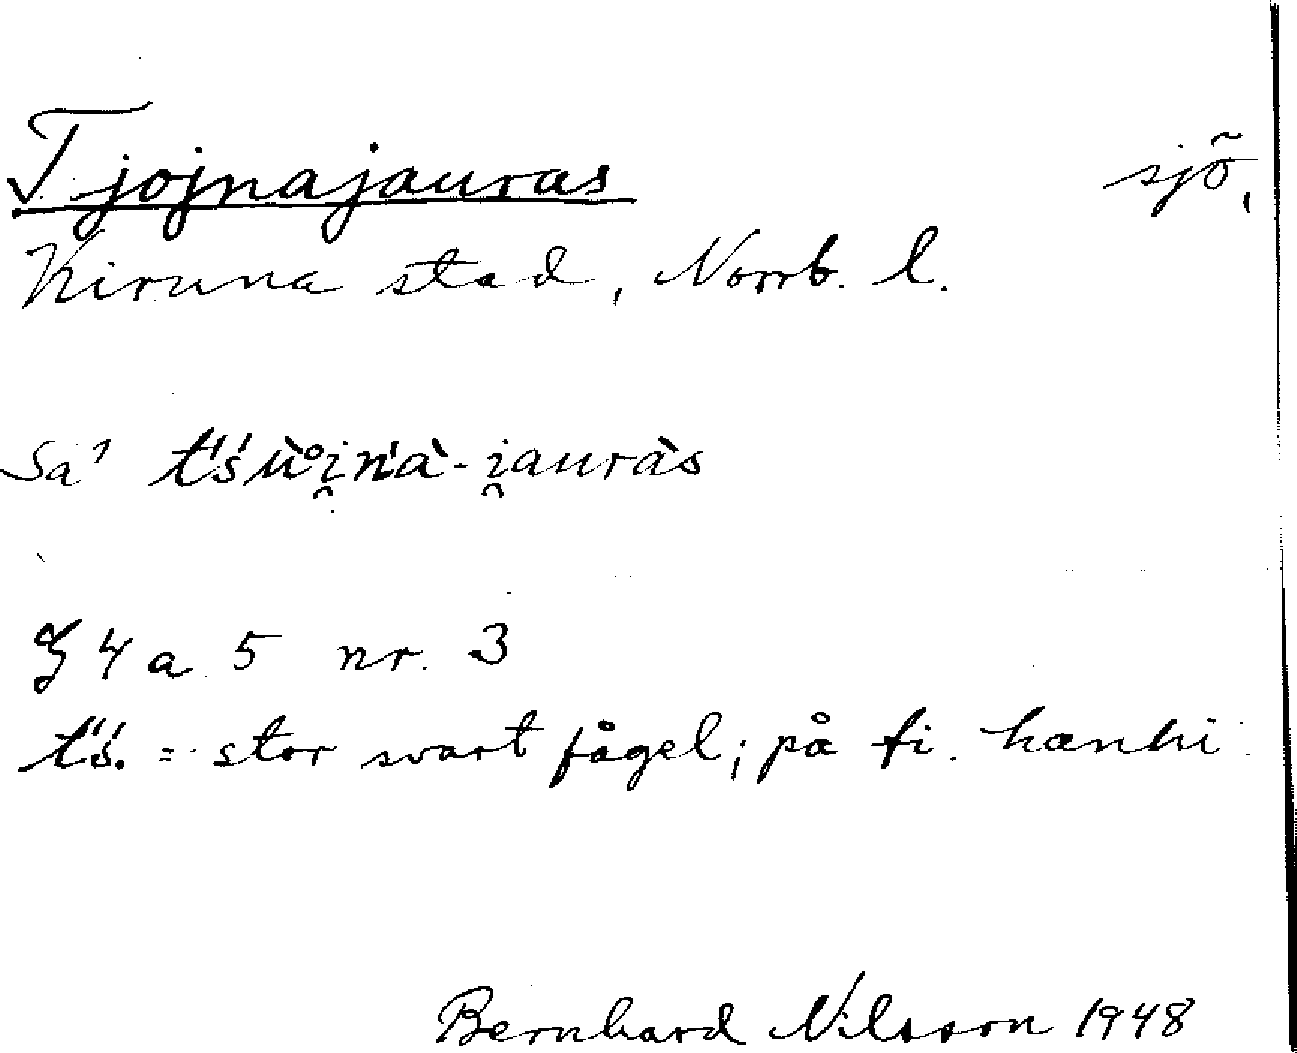 Tjojnajauras sjö,
Kiruna stad, Norrb. l.
Sa' t́śùi̯ńà-i̯auràs
§ 4 a 5 nr. 3
t́ś. = stor svart fågel; på fi. hanhi
Bernhard Nilsson 1948